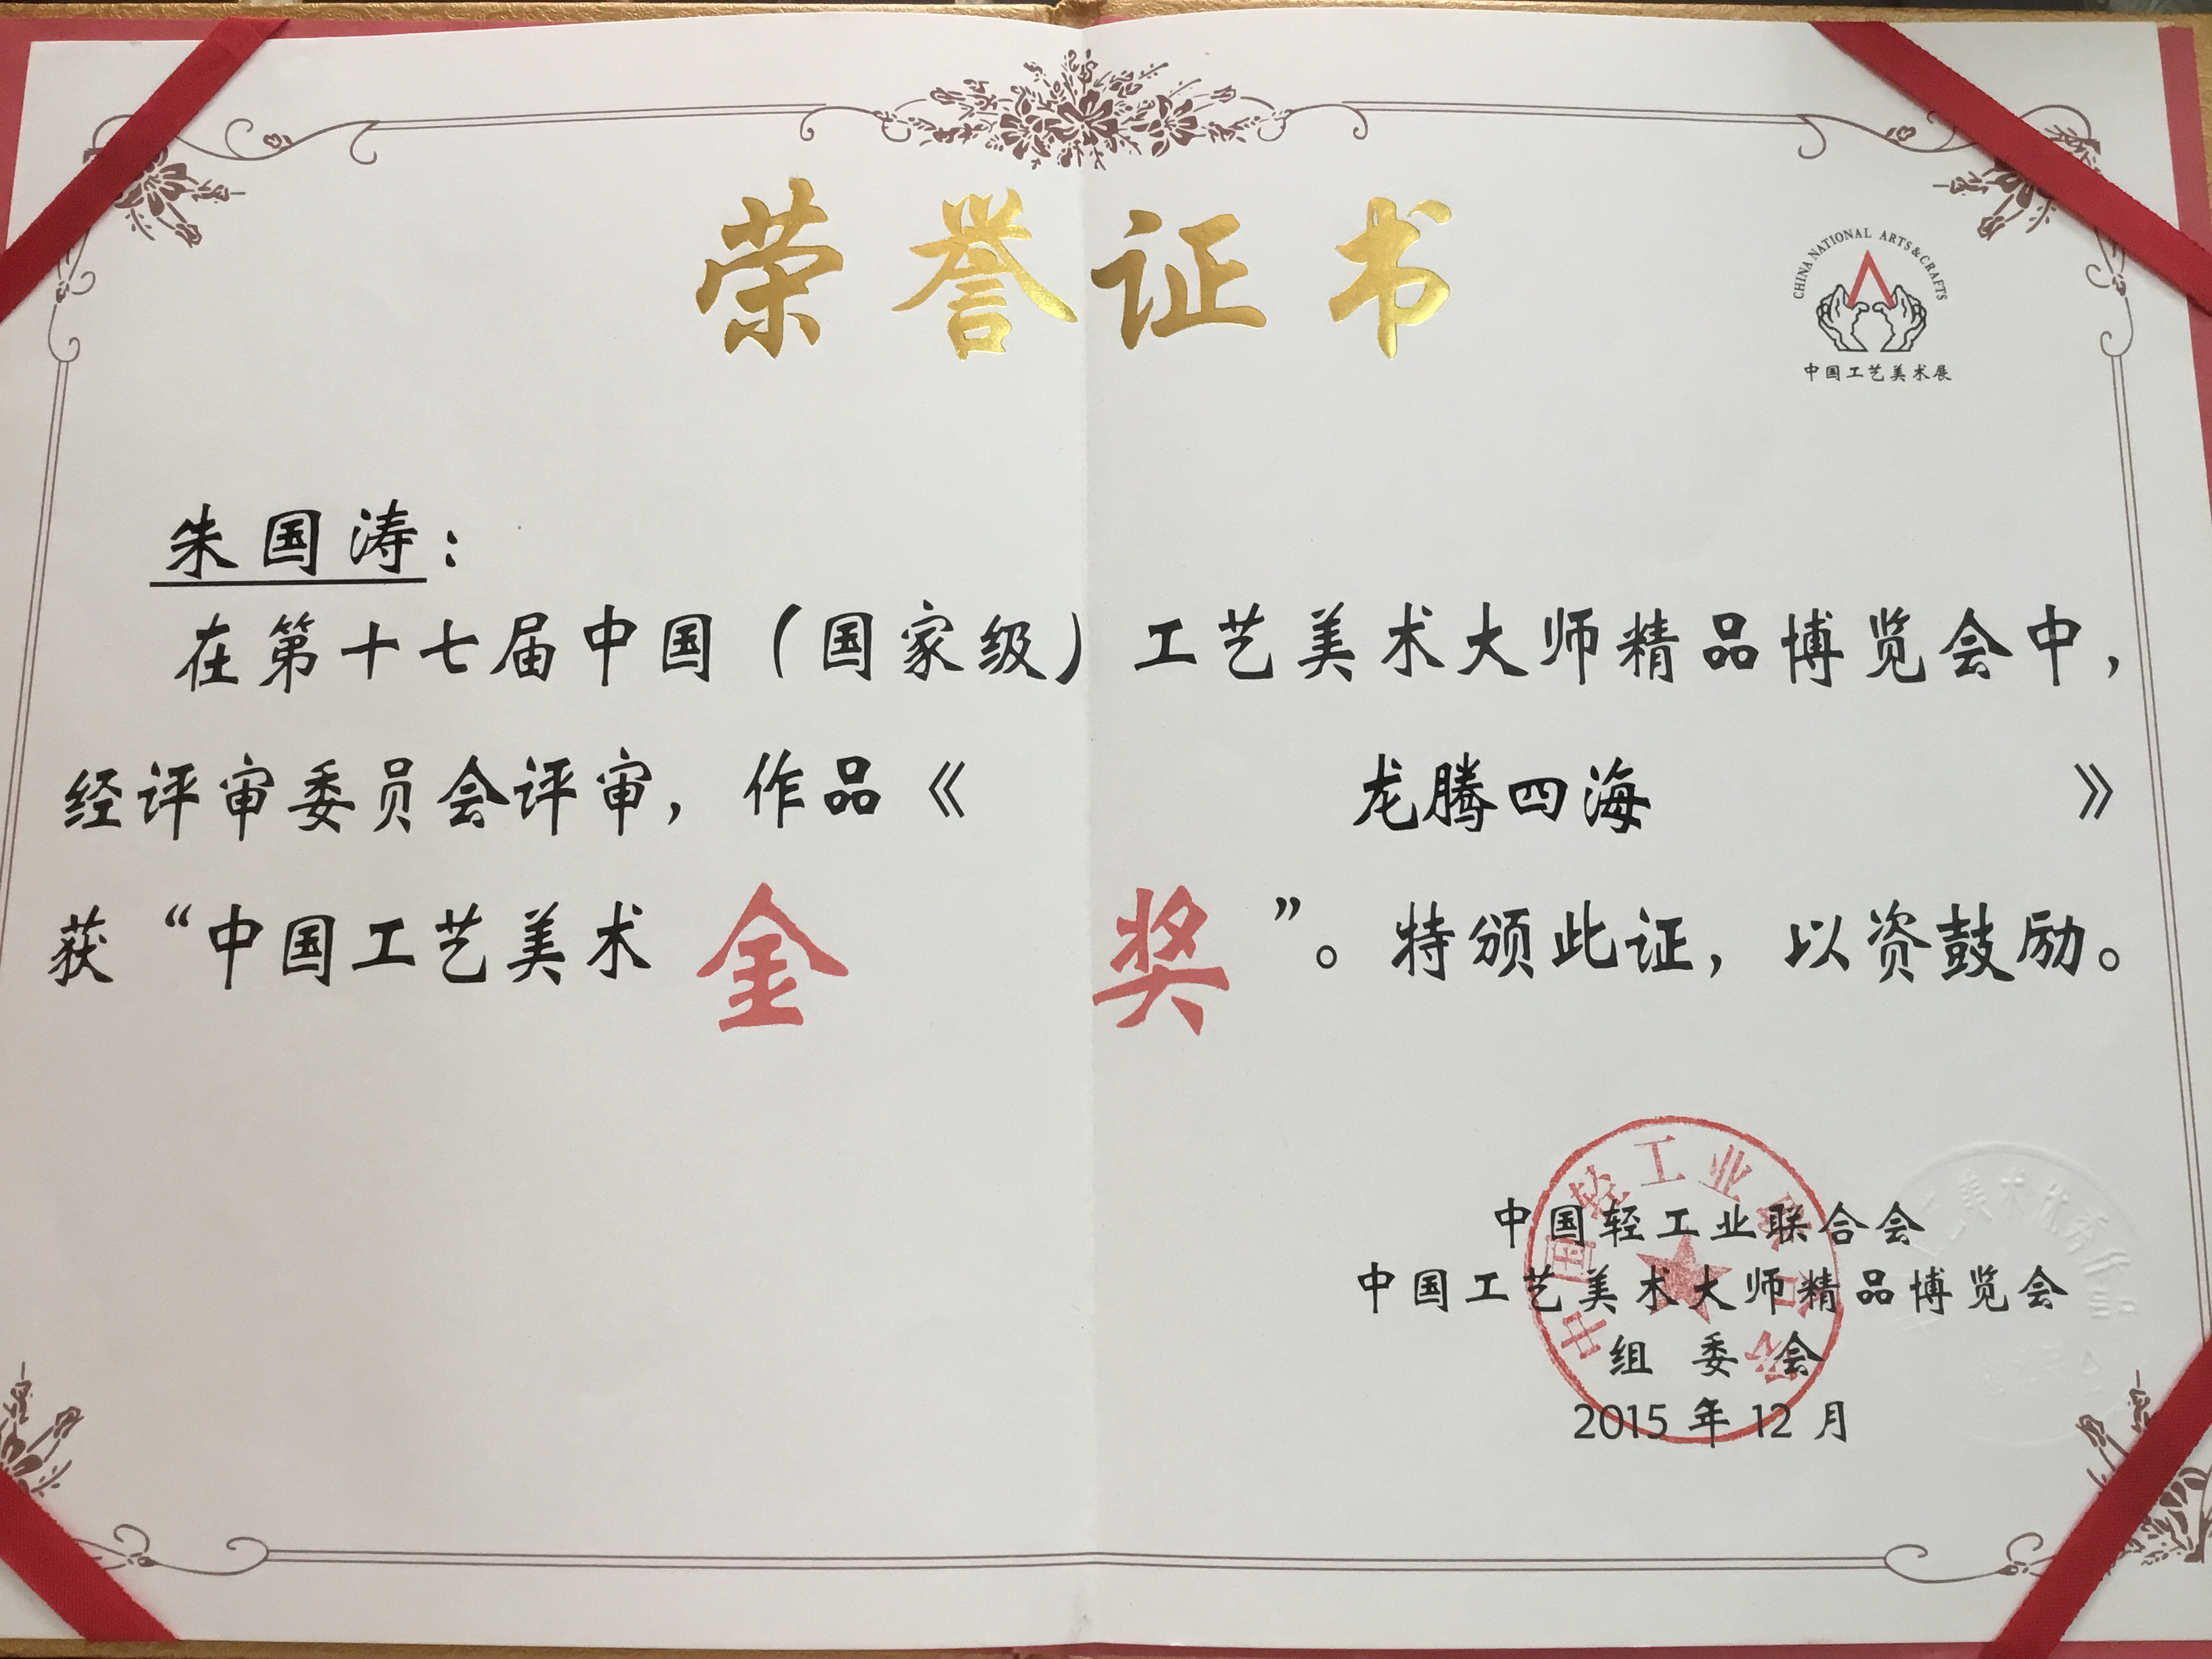 荣誉证书
CHINA NATIONAL ARTS&CRAFTS
中国工艺美术展
朱国涛：
在第十七届中国（国家级）工艺美术大师精品博览会中，
经评审委员会评审，作品《龙腾四海》
获“中国工艺美术金奖”。特颁此证，以资鼓励。
中国轻工业联合会
中国工艺美术大师精品博览会
组委会
2015年12月
中国轻工业联合会